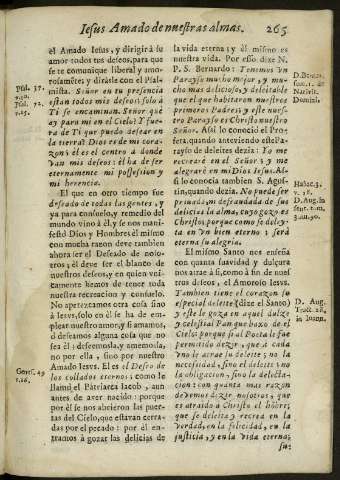 Iesus Amado de nuestras almas. 265
el Amado Iesus, y dirigirà su
amor todos tus deseos, para que
se te comunique liberal y amo-
rosamẽte; y dirásle con el Psal-
mista. Señor en tu presencia
están todos mis deseos: solo à
Ti se encaminan. Señor què
ay para mi en el Cielo? I fue-
ra de Ti que puedo desear en
la tierra? Dios eres de mi cora-
zon; èl es el centro à donde
van mis deseos: èl ha de ser
eternamente mi possession y
mi herencia.
El que en otro tiempo fue
deseado de todas las gentes, y
ya para consuelo, y remedio del
mundo vino à èl, y se nos mani-
festò Dios y Hombre, èl mismo
con mucha razon deve tambien
ahora ser el Deseado de noso-
tros; èl deve ser el blanco de
nuestros deseos, y en quien voi-
camente hemos de tener toda
nuestra recreacion y consuelo.
No apetezcamos otra cosa sino
à Iesus, solo en èl se ha de em-
plear nuestro amor, y si amamos,
ò deseamos alguna cosa que no
sea èl: desemosla, y amemosla,
no por ella, sino por nuestro
Amado Iesus. El es el Deseo de
los collados eternos; como le
llamò el Patriarca Iacob, aun
antes de aver nacido: porque
por èl se nos abrieron las puer-
tas del Cielo, que estavan cerra-
das por el pecado: por èl en-
tramos à gozar las delicias de
Psal. 37.
v.10.
Psal. 72.
v.25.
Genes. 49
v.26.
la vida eterna; y èl mismo es
nuestra vida. Por esso dize N.
P. S. Bernardo: Tenemos vn
Parayso mucho mejor, y mu-
cho mas delicioso, y deleitable
que el que habitaron nuestros
primeros Padres; y este nues-
tro Parayso es Christo nuestro
Señor. Assi lo conociò el Pro-
feta, quando anteviendo este Pa-
rayso de deleites dezia: Yo me
recrearè en el Señor; y me
alegrarè en mi Dios Iesus. As-
si lo conociò tambien S. Agus-
tin, quando dezia. No puede ser
privada, ni defraudada de sus
delicias la alma, cuyo gozo es
Christo; porque como se deley-
ta en vn bien eterno; serà
eterna su alegria.
El mismo Santo nos enseña
con quanta suavidad y dulçura
nos atrae à si, como à fin de nues-
tros deseos, el Amoroso Iesus.
Tambien tiene el corazon su
especial deleite (dize el Santo)
y este le goza en aquel dulze
y celestial Pan que baxo de el
Cielo; porque si al Poeta le fue
permitido dezir, que à cada
vno le atrae su deleite; no la
necessidad, sino el deleite; no
la obligacion, sino la delecta-
cion: con quanta mas razon
devemos dezir nosotros, que
es atraido à Christo el hõbre;
que se deleita y recrea en la
verdad, en la felicidad, en la
justicia, y en la vida eterna;
su-
D. Bernar.
serm. 1. de
Nativit.
Domini.
Habac. 3.
v. 18.
D. Aug. in
D. Aug.
Tract. 26.
in Ioann.